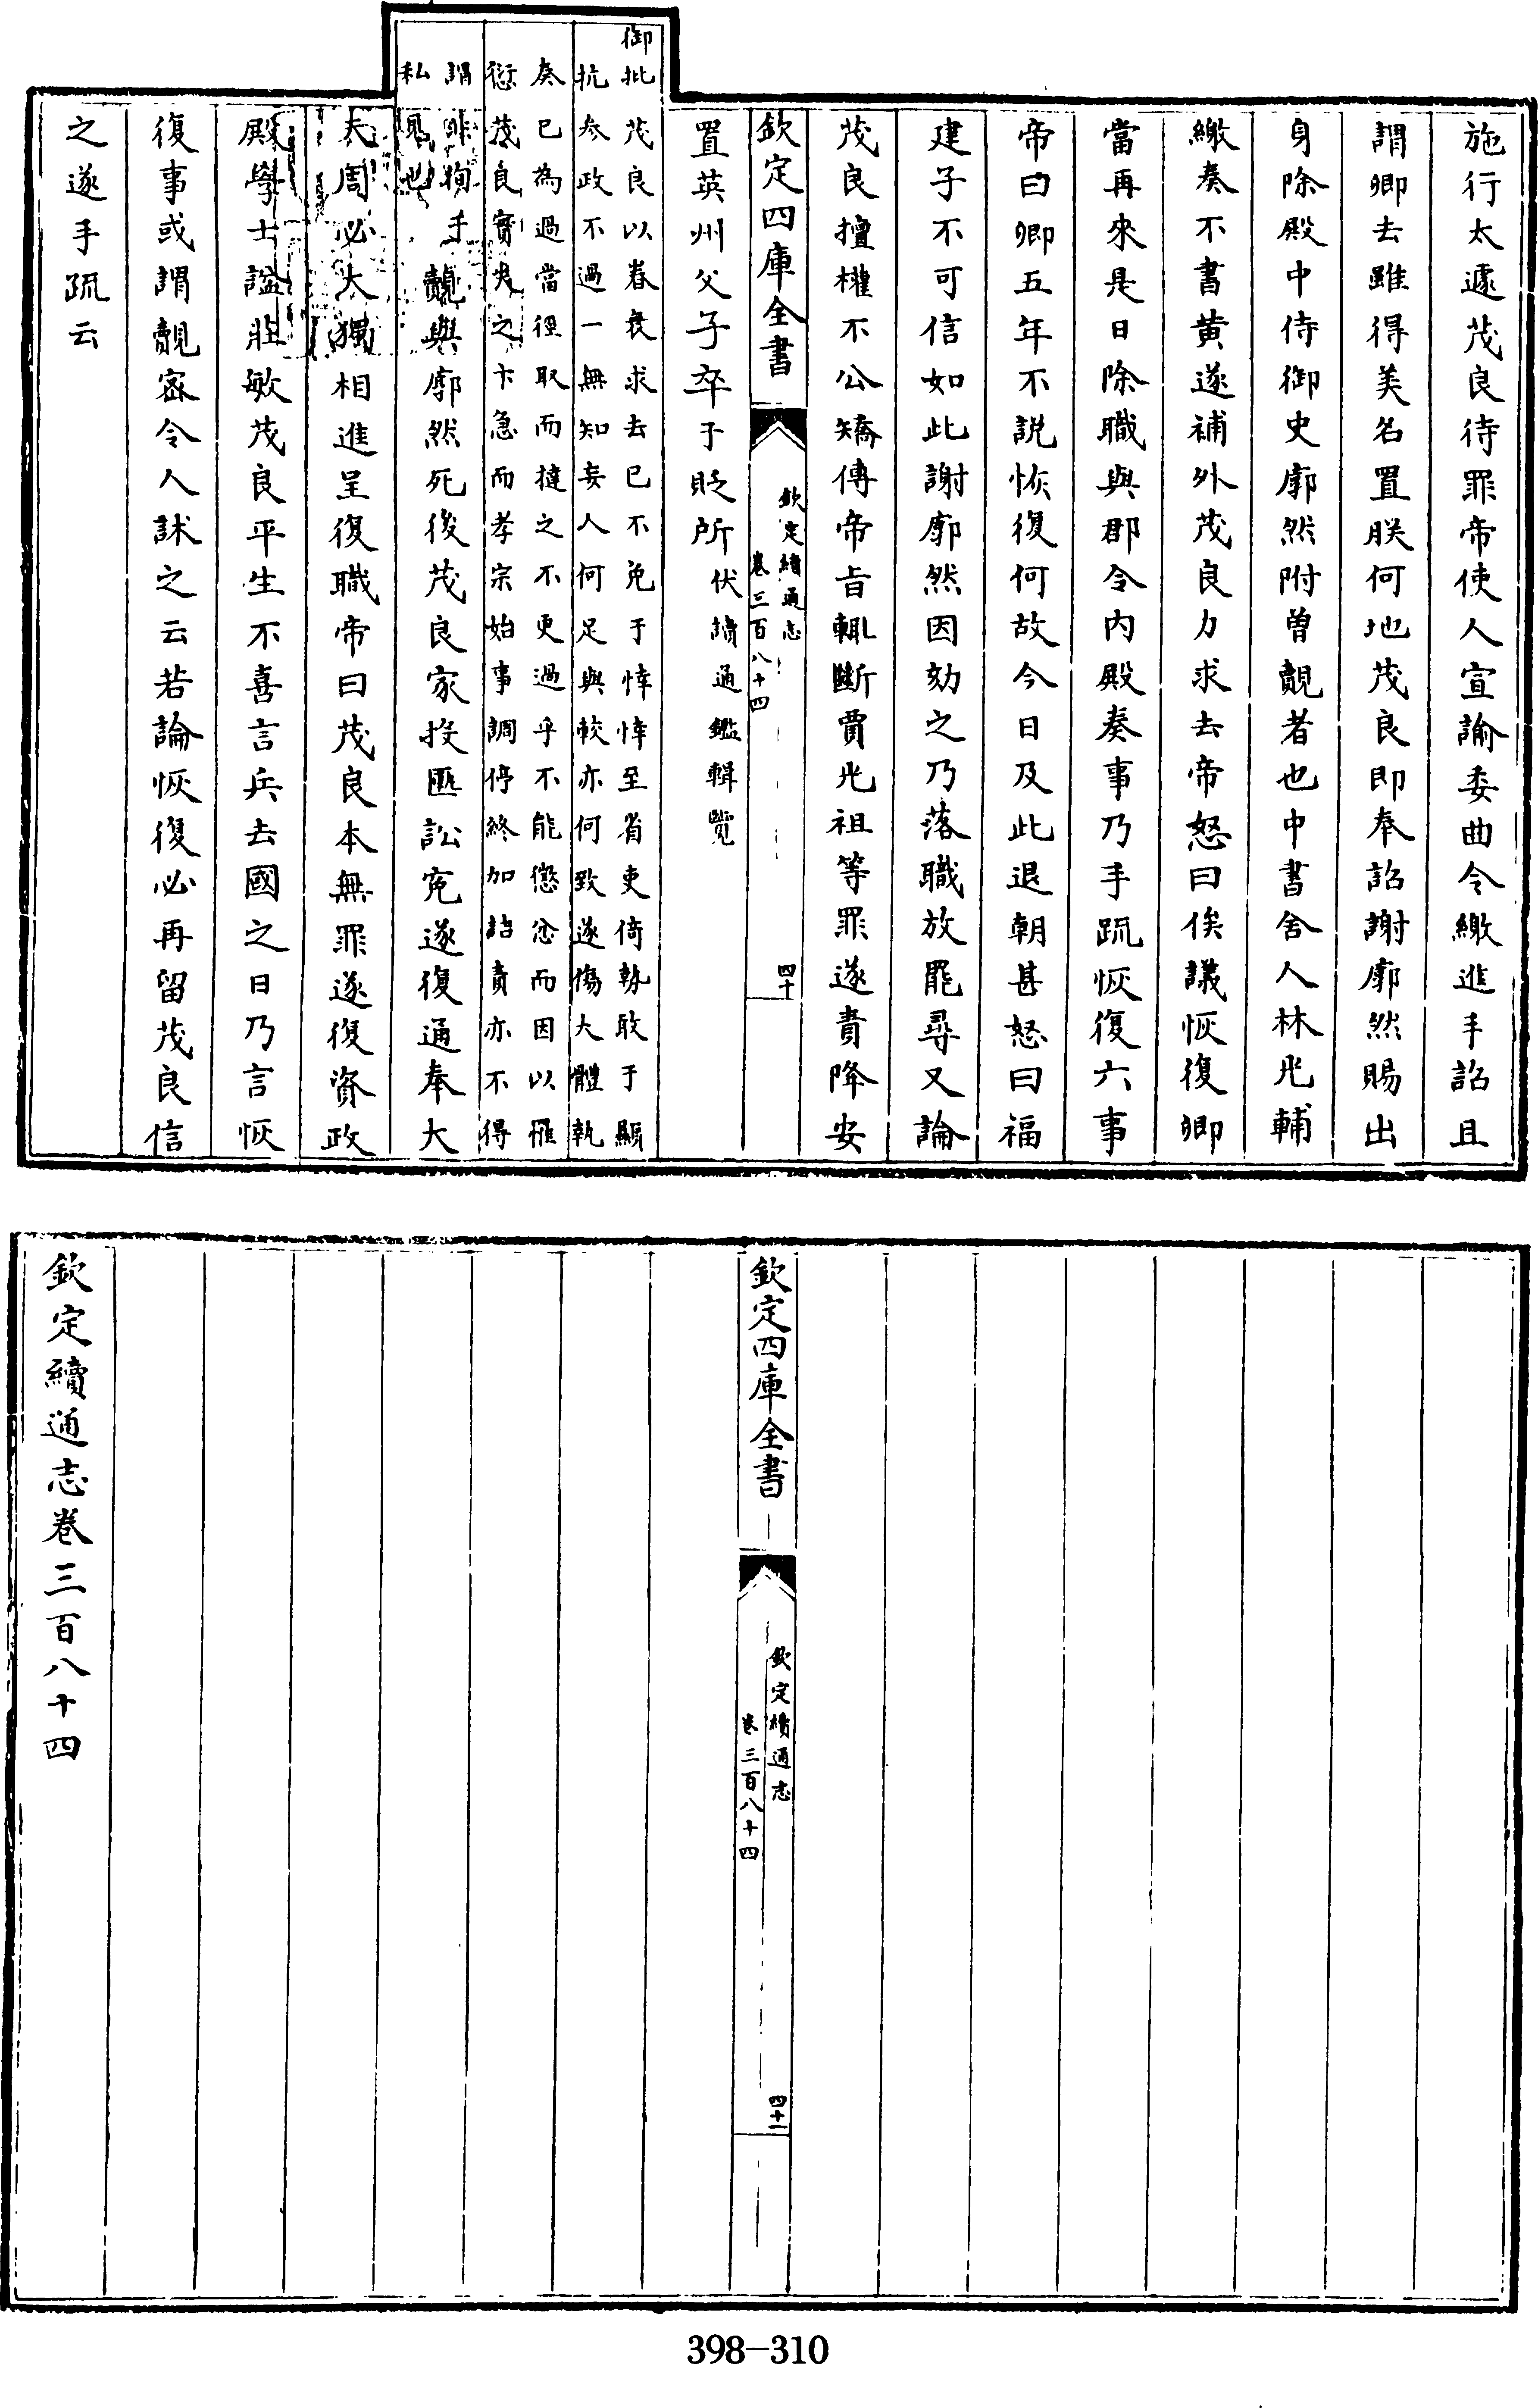 施行太遽茂良待罪帝使人宣諭委曲令繳進手詔且
謂卿去雖得美名置朕何地茂良即奉詔謝廓然賜出
身除殿中侍御史廓然附曾覿者也中書舍人林光輔
繳奏不書黃遂補外茂良力求去帝怒曰俟議恢復卿
當再來是日除職與郡令內殿奏事乃手疏恢復六事
帝曰卿五年不說恢復何故今日及此退朝甚怒曰福
建子不可信如此謝廓然因劾之乃落職放罷尋又論
茂良擅權不公矯傳帝旨輒斷賈光祖等罪遂責降安
欽定四庫全書
欽定續通志
卷三百八十四
四十
置英州父子卒于貶所 伏讀通鑑輯覽
御批茂良以眷衰求去已不免于悻悻至省吏倚勢敢于顯
抗參政不過一無知妄人何足與較亦何致遂傷大體執
奏已為過當徑取而撻之不更過乎不能懲忿而因以罹
愆茂良實失之卞急而孝宗始事調停終加詰責亦不得
謂非狥
私見也
覿與廓然死後茂良家投匭訟寃遂復通奉大
夫周必大獨相進呈復職帝曰茂良本無罪遂復資政
殿學士諡莊敏茂良平生不喜言兵去國之日乃言恢
復事或謂覿密令人訹之云若論恢復必再留茂良信
之遂手疏云
欽定四庫全書
欽定續通志
卷三百八十四
四十一
欽定續通志卷三百八十四
398-310